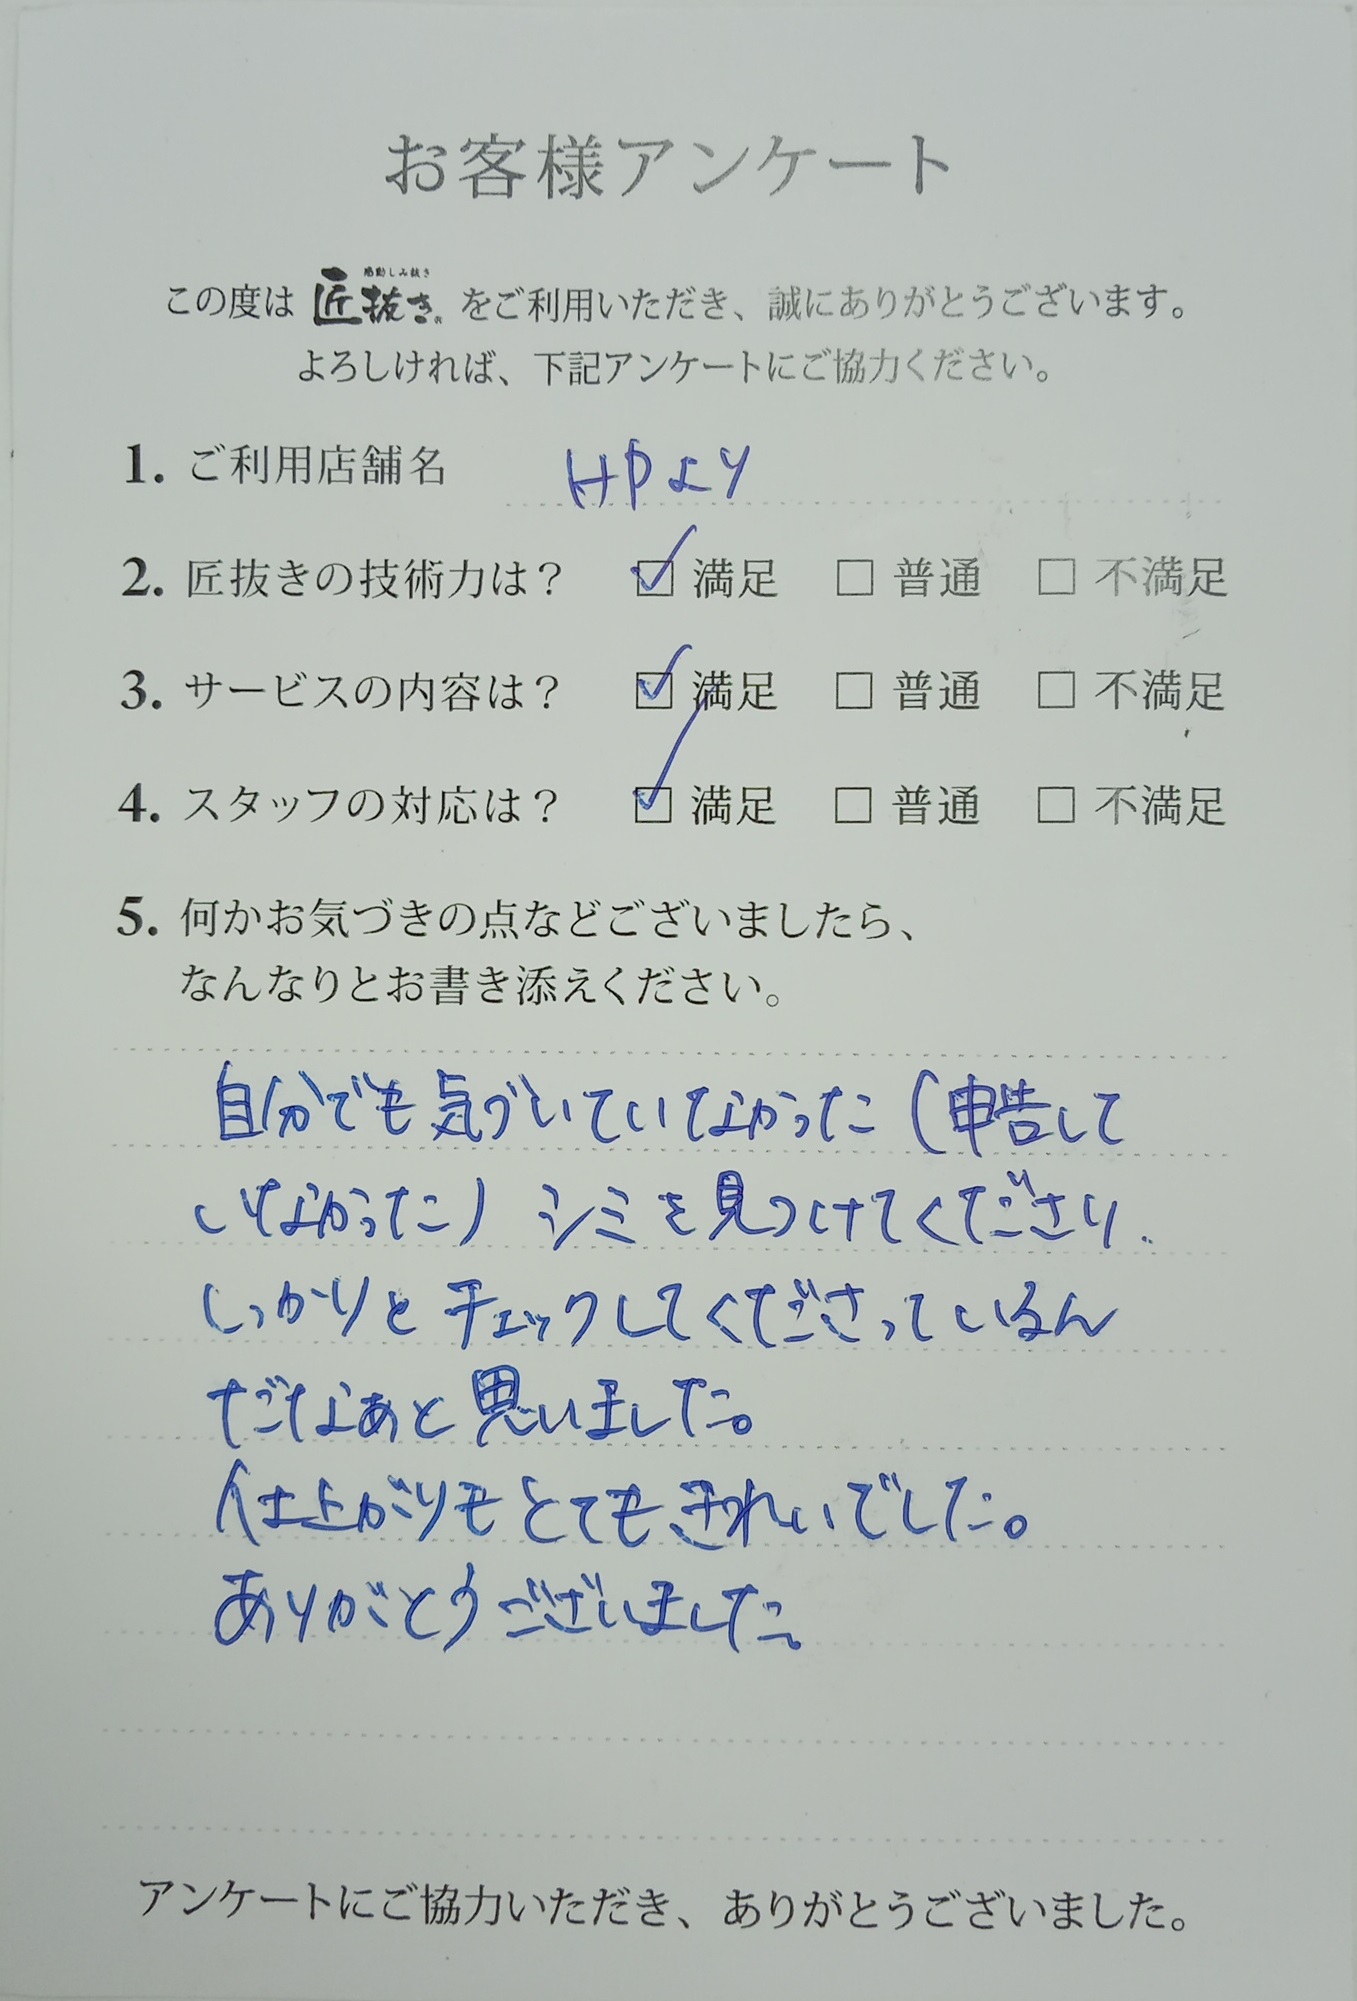 お客様アンケート
感動しみ抜き
この度は 匠抜き をご利用いただき、誠にありがとうございます。
よろしければ、下記アンケートにご協力ください。
1. ご利用店舗名 HPより
2. 匠抜きの技術力は? ☑ 満足 □ 普通 □ 不満足
3. サービスの内容は? ☑ 満足 □ 普通 □ 不満足
4. スタッフの対応は? ☑ 満足 □ 普通 □ 不満足
5. 何かお気づきの点などございましたら、
なんなりとお書き添えください。
自分でも気づいていなかった(申告して
いなかった) シミを見つけてくださり、
しっかりとチェックしてくださっているん
だなぁと思いました。
仕上がりもとてもきれいでした。
ありがとうございました。
アンケートにご協力いただき、ありがとうございました。